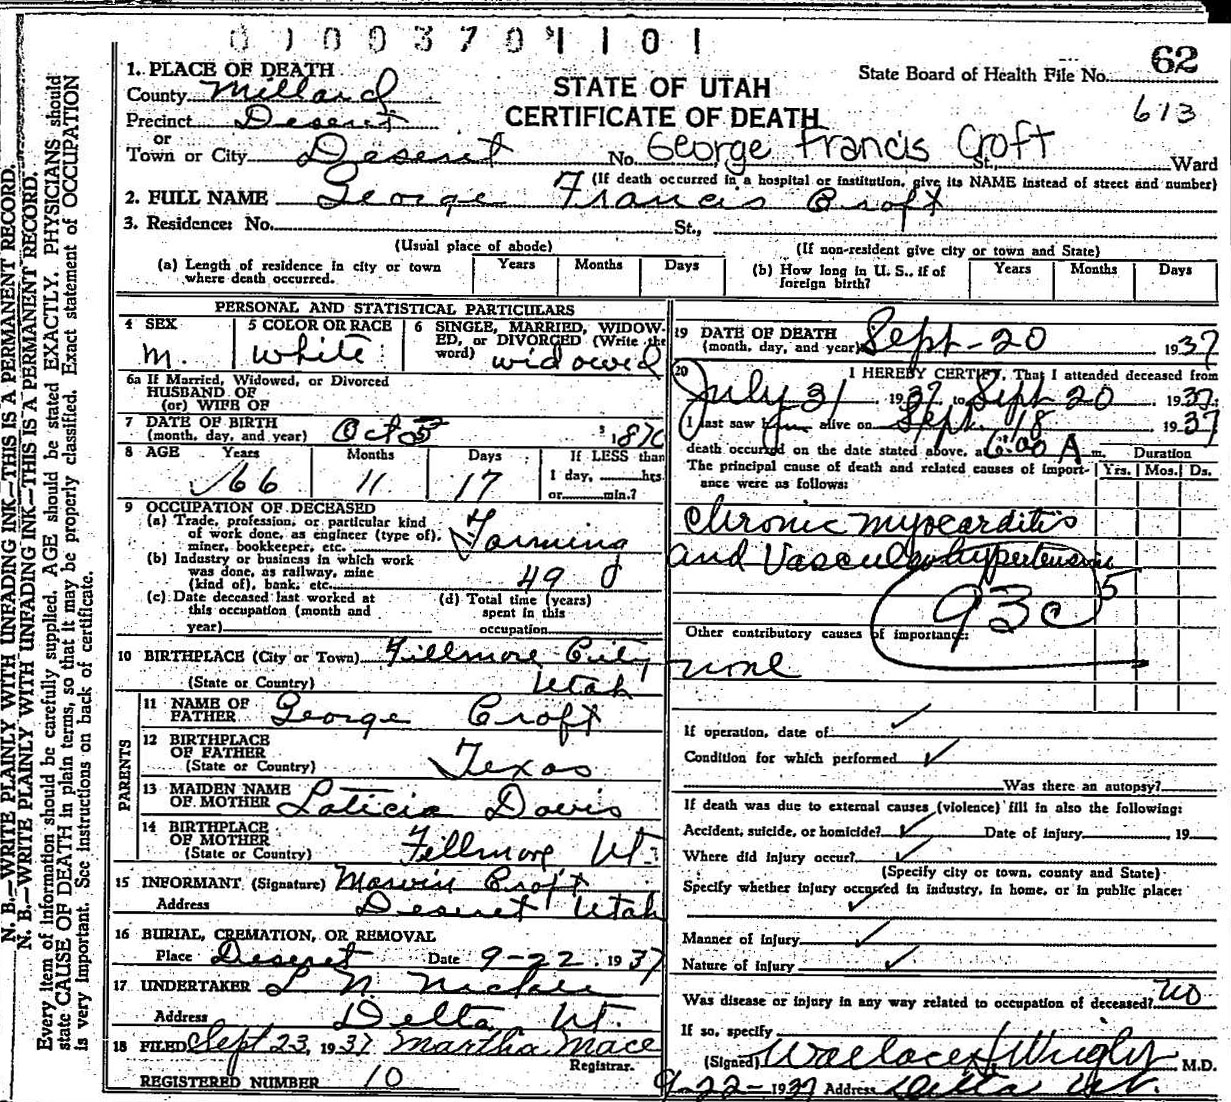 N. B.—WRITE PLAINLY WITH UNFADING INK—THIS IS A PERMANENT RECORD.
N. B.—WRITE PLAINLY WITH UNFADING INK—THIS IS A PERMANENT RECORD.
Every item of information should be carefully supplied. AGE should be stated EXACTLY. PHYSICIANS should
state CAUSE OF DEATH in plain terms, so that it may be properly classified. Exact statement of OCCUPATION
is very important. See instructions on back of certificate.
0100370 1101
62
State Board of Health File No.
613
STATE OF UTAH
CERTIFICATE OF DEATH
1. PLACE OF DEATH
County Millard
Precinct Deseret
or
Town or City Deseret No. George Francis Croft St. Ward
(If death occurred in a hospital or institution, give its NAME instead of street and number)
2. FULL NAME George Francis Croft
3. Residence: No. St.,
(Usual place of abode) (If non-resident give city or town and State)
(a) Length of residence in city or town where death occurred. Years Months Days
(b) How long in U. S., if of foreign birth? Years Months Days
PERSONAL AND STATISTICAL PARTICULARS
4 SEX m.
5 COLOR OR RACE white
6 SINGLE, MARRIED, WIDOWED, or DIVORCED (Write the word) widowed
6a If Married, Widowed, or Divorced
HUSBAND OF
(or) WIFE OF
7 DATE OF BIRTH
(month, day, and year) Oct 5 1870
8 AGE Years Months Days If LESS than
66 11 17 1 day, hrs.
or min.?
9 OCCUPATION OF DECEASED
(a) Trade, profession, or particular kind
of work done, as engineer (type of),
miner, bookkeeper, etc. Farming
(b) Industry or business in which work
was done, as railway, mine
(kind of), bank, etc. 49
(c) Date deceased last worked at
this occupation (month and
year)
(d) Total time (years)
spent in this
occupation
10 BIRTHPLACE (City or Town) Fillmore City
(State or Country) Utah
PARENTS
11 NAME OF
FATHER George Croft
12 BIRTHPLACE
OF FATHER
(State or Country) Texas
13 MAIDEN NAME
OF MOTHER Laticia Davis
14 BIRTHPLACE
OF MOTHER
(State or Country) Fillmore Ut.
15 INFORMANT (Signature) Marvin Croft
Address Deseret Utah
16 BURIAL, CREMATION, OR REMOVAL
Place Deseret Date 9-22. 1937
17 UNDERTAKER L N
Address Delta Ut.
18 FILED Sept 23, 1937 Martha Mace
Registrar.
REGISTERED NUMBER 10
19 DATE OF DEATH
(month, day, and year) Sept-20 1937
20 I HEREBY CERTIFY, That I attended deceased from
July 31 1937, to Sept 20 1937.
I last saw him alive on Sept. 18 1937
death occurred on the date stated above, at 6:00 A m. Duration
The principal cause of death and related causes of importance were as follows: Yrs. Mos. Ds.
chronic myocarditis
and Vascular hypertension
93c 5
Other contributory causes of importance:
none
If operation, date of
Condition for which performed
Was there an autopsy?
If death was due to external causes (violence) fill in also the following:
Accident, suicide, or homicide? Date of injury 19
Where did injury occur?
(Specify city or town, county and State)
Specify whether injury occurred in industry, in home, or in public place:
Manner of injury
Nature of injury
Was disease or injury in any way related to occupation of deceased? no
If so, specify
(Signed) Wallace Wright M.D.
9-22-1937 Address Delta Ut.